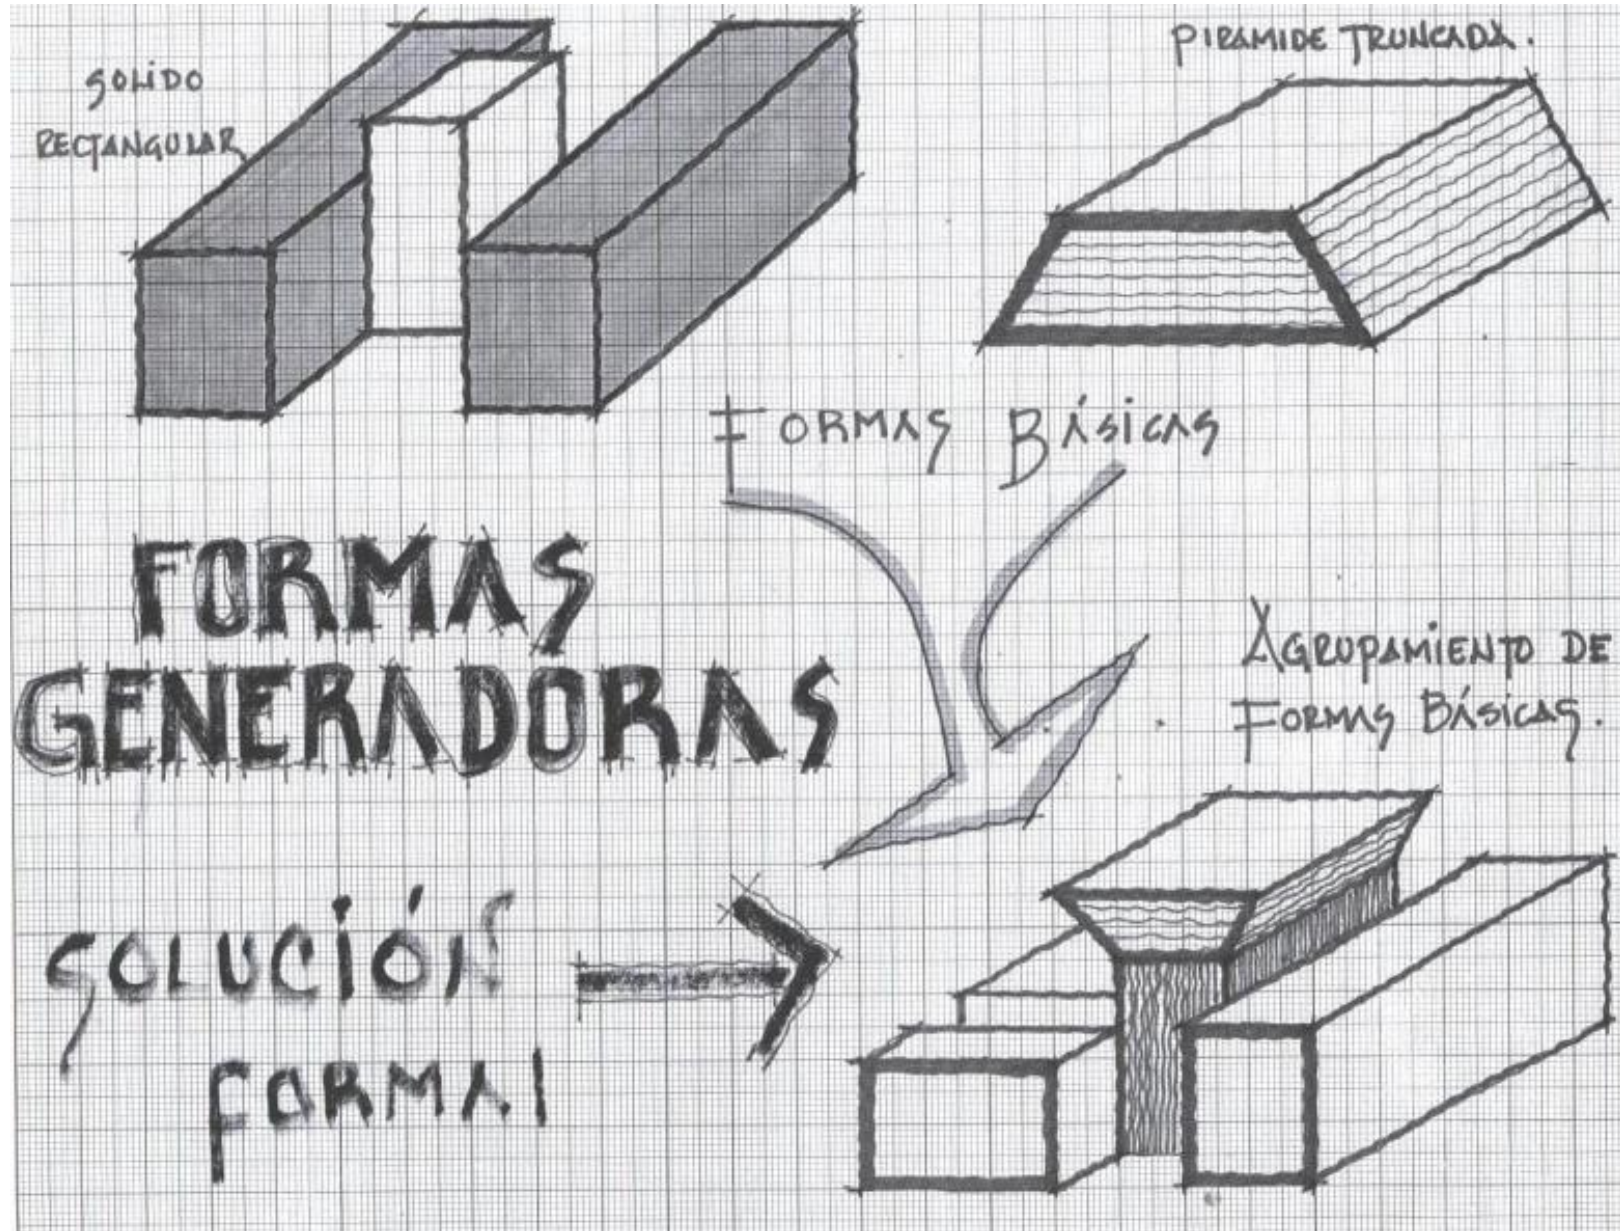 SOLIDO
RECTANGULAR
PIRAMIDE TRUNCADA.
FORMAS BÁSICAS
FORMAS
GENERADORAS
AGRUPAMIENTO DE
FORMAS BÁSICAS.
SOLUCIÓN
FORMAL